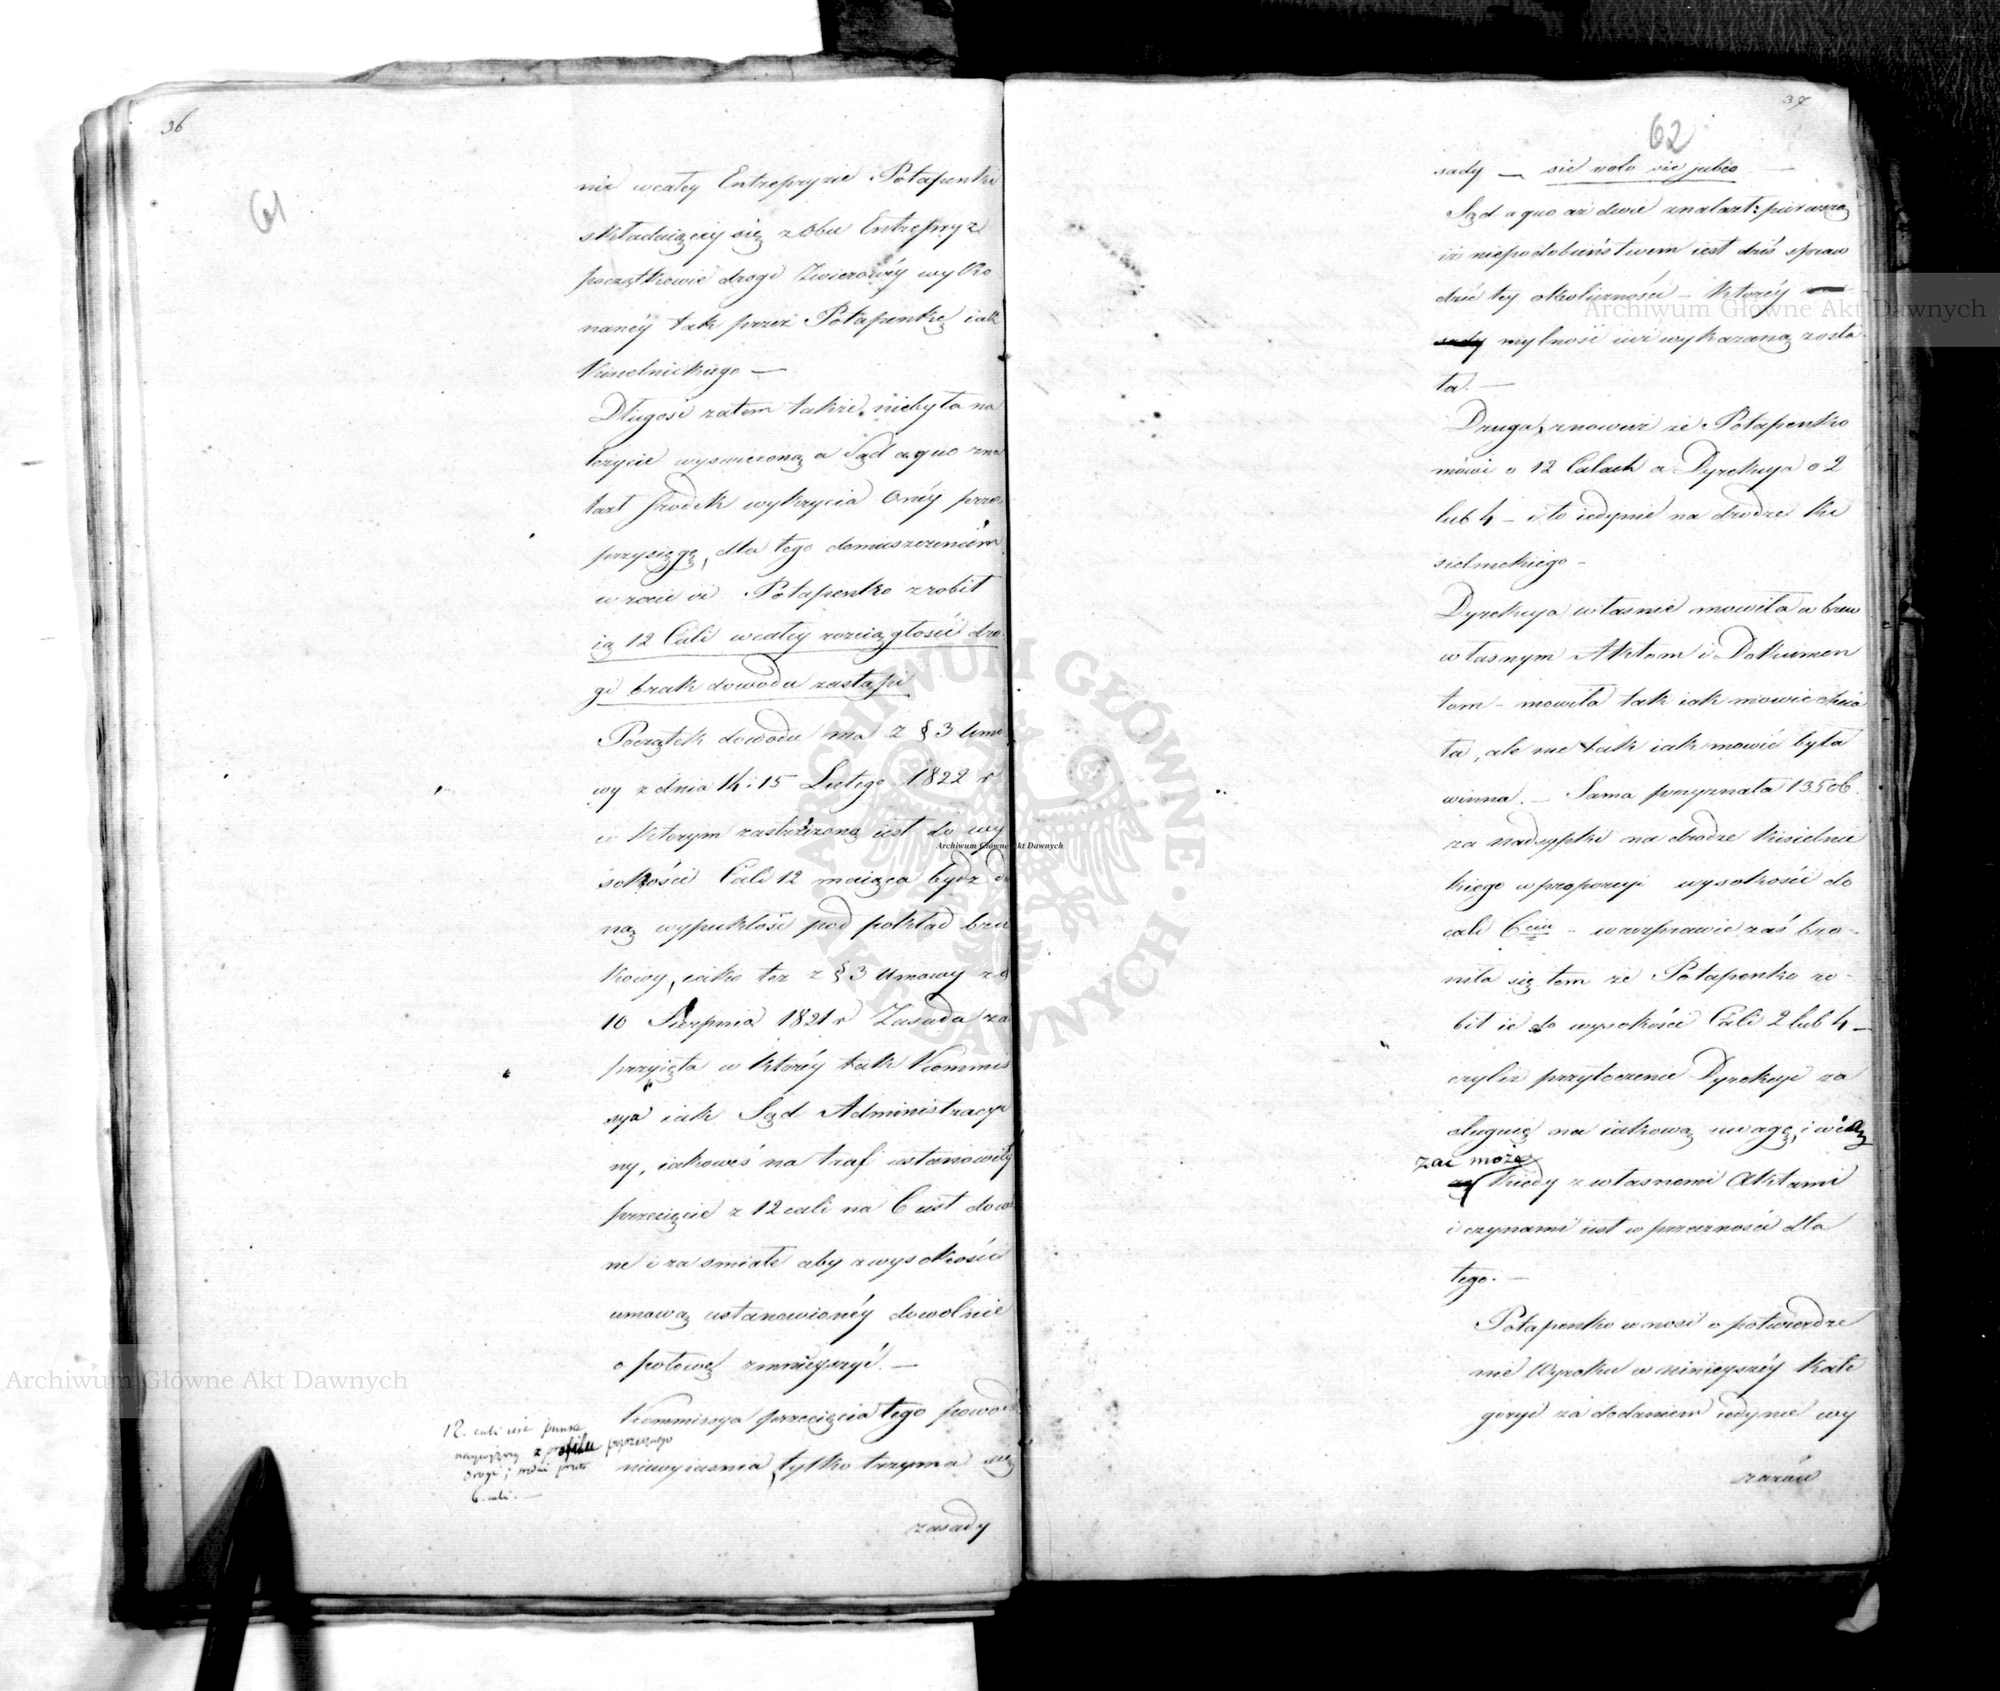 36
61
nie wcałey Entrepryzie Potapenki
składaiącey się z obu Entrepryz
początkowie drogi Żwirowéy wyko
nanéy tak przez Potapenkę iak
Kisielnickiego —
Długość zatem także niebyła na
leżycie wyswieconą a Sąd a quo zna
lazł srodek wykrycia Onéy przez
przysięgę, dla tego domieszczeniem
w rocie iż Potapenko zrobił
ią 12 Cali wcałey rozciągłości dro
gi brak dowodu zastąpi
Początek dowodu ma z § 3 Umo
wy z dnia 14: 15 Lutego 1822 r
w którym zastrzeżoną iest do wy
sokości Cali 12 maiąca bydź da
ną wypukłość pod pokład bru
kowy, iako też z § 3 Umowy z d
10 Sierpnia 1821 r Zasada za
przyięta w któréy tak Kommis
sya iak Sąd Administracyi
ny, iakoweś na traf ustanowiły
przecięcie z 12 cali na 6 iest dowol
ne i za smiałe aby z wysokości
umową ustanowionéy dowolnie
o połowę zmnieyszyć. —
Kommissya przecięcia tego powodu
niewyiasnia, tylko trzyma się
12. cali iest punkt
naywyższy z profilu poprzecznego
drogi; sredni przeto
6. cali. —
zasady
37
62
sady — sic volo sic jubeo —
Sąd a quo aż dwie znalazł: pierwszą
iż niepodobieństwem iest dziś spraw
dzić tey okoliczności — któréy
mylność iuż wykazaną zosta
ła. —
Druga, znowuż że Potapenko
mówi o 12 Calach a Dyrekcya o 2
lub 4 — i to iedynie na drodze Ki
sielnickiego —
Dyrekcya własnie mowiła w brew
własnym Aktom i Dokumen
tom — mowiła tak iak mowić chcia
ła, ale nie tak iak mowić była
winna. — Sama przyznała 1350b.
za nadsypkę na drodze Kisielnic
kiego w proporcyi wysokości do
cali 6ciu — w rozprawie zaś bro-
niła się tem że Potapenko ro-
bił ie do wysokości Cali 2 lub 4 —
czyliż przytoczenie Dyrekcyi za
sługuie na iakową uwagę, i wią
zać może
kiedy z własnemi Aktami
i czynami iest w przeczności dla
tego. —
Potapenko wnosi o potwierdze
nie Wyroku w ninieyszéy Kate
goryi za dodaniem iedynie wy
razów
Archiwum Główne Akt Dawnych
Archiwum Główne Akt Dawnych
Archiwum Główne Akt Dawnych
ARCHIWUM GŁÓWNE AKT DAWNYCH